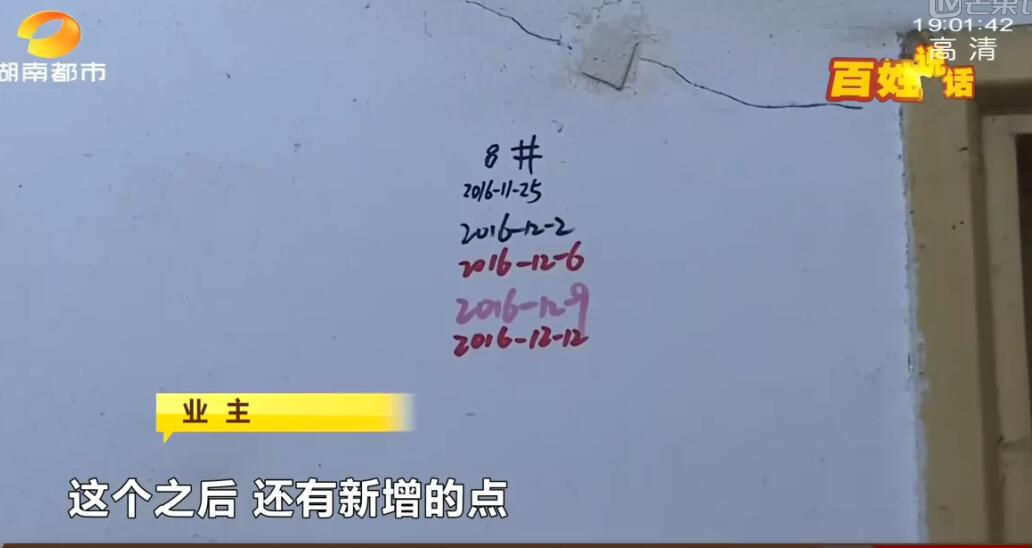 湖南都市
19:01:42
高清
百姓说话
8 #
2016-11-25
2016-12-2
2016-12-6
2016-12-9
2016-12-12
业主
这个之后 还有新增的点